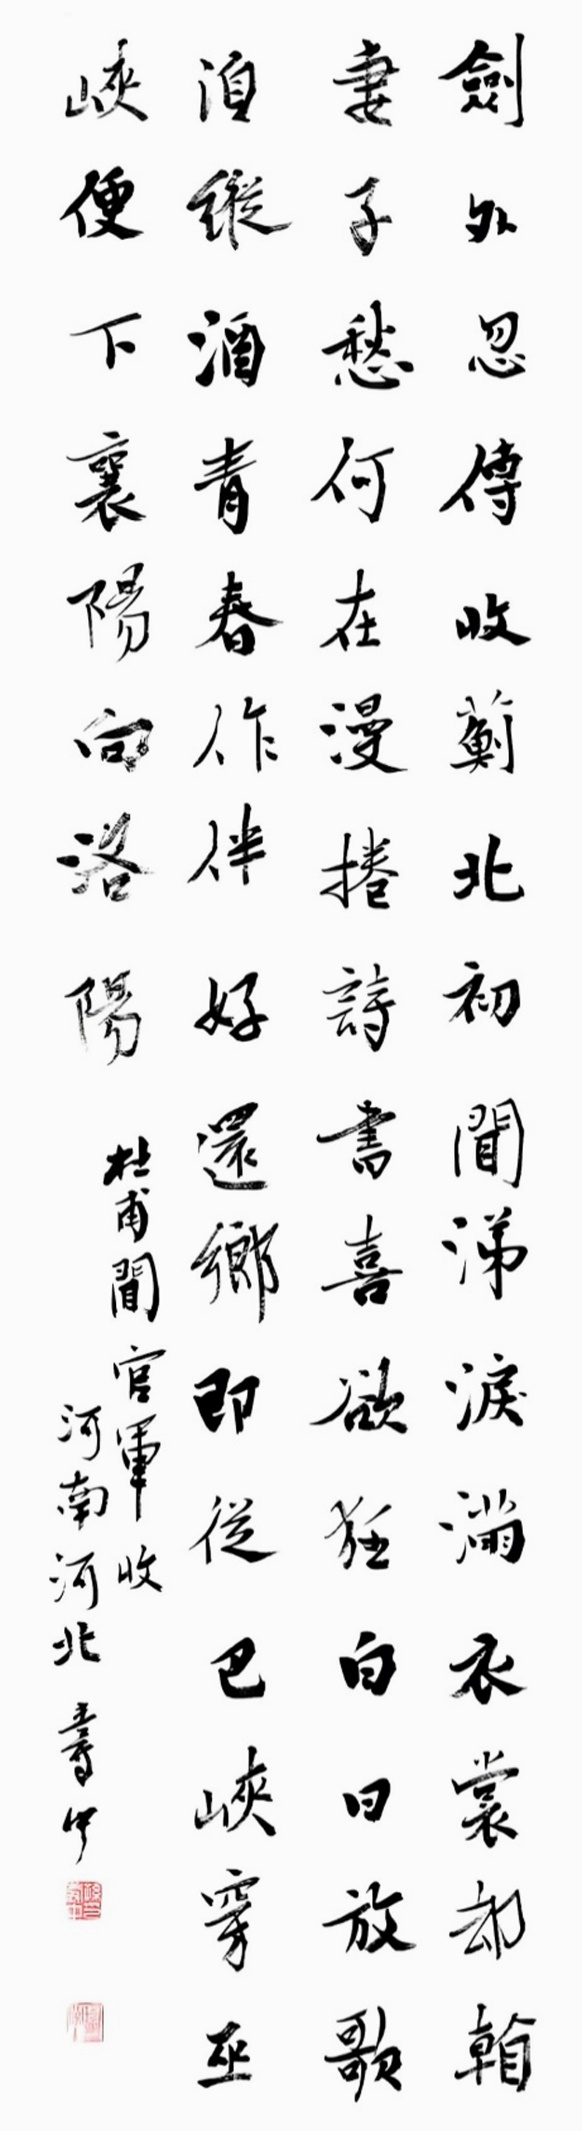 劍外忽傳收薊北初聞涕淚滿衣裳却看
妻子愁何在漫捲詩書喜欲狂白日放歌
湏縱酒青春作伴好還鄉即從巴峽穿巫
峽便下襄陽向洛陽
杜甫聞官軍收
河南河北 壽